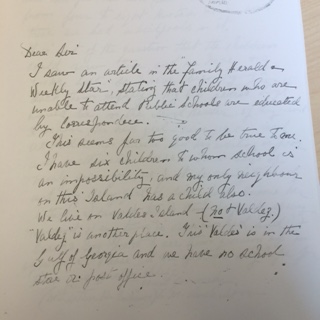 Dear Sir
I saw an article in the Family Herald &
Weekly Star", stating that children who are
unable to attend Public Schools are educated
by correspondence.
This seems far too good to be true to me.
I have six children to whom school is
an impossibility, and my only neighbour
on this Island has a child also.
We live on Valdes Island - (not Valdez.)
"Valdez" is another place. This "Valdes" is in the
Gulf of Georgia and we have no school
store or post office.